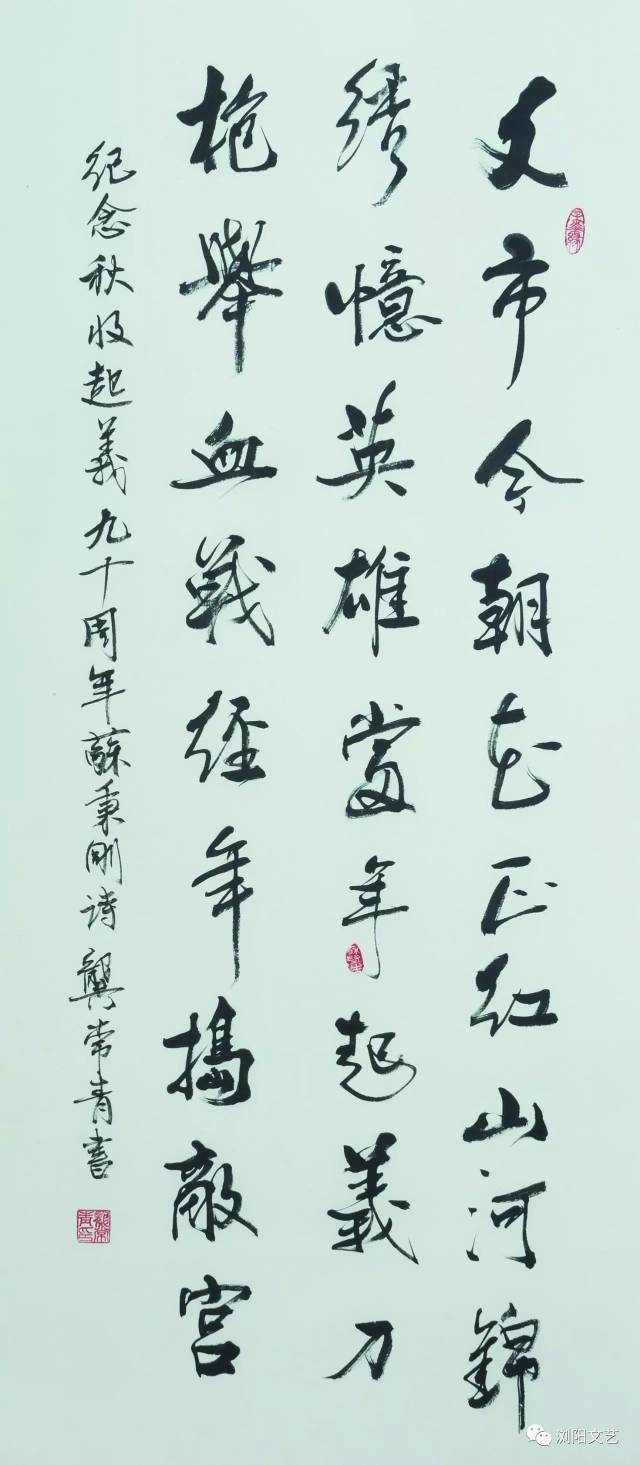 文市今朝花正红山河錦
绣憶英雄當年起義刀
枪舉血戰经年搗敵宫
纪念秋收起義九十周年蘇秉刚诗龔常青書
浏阳文艺